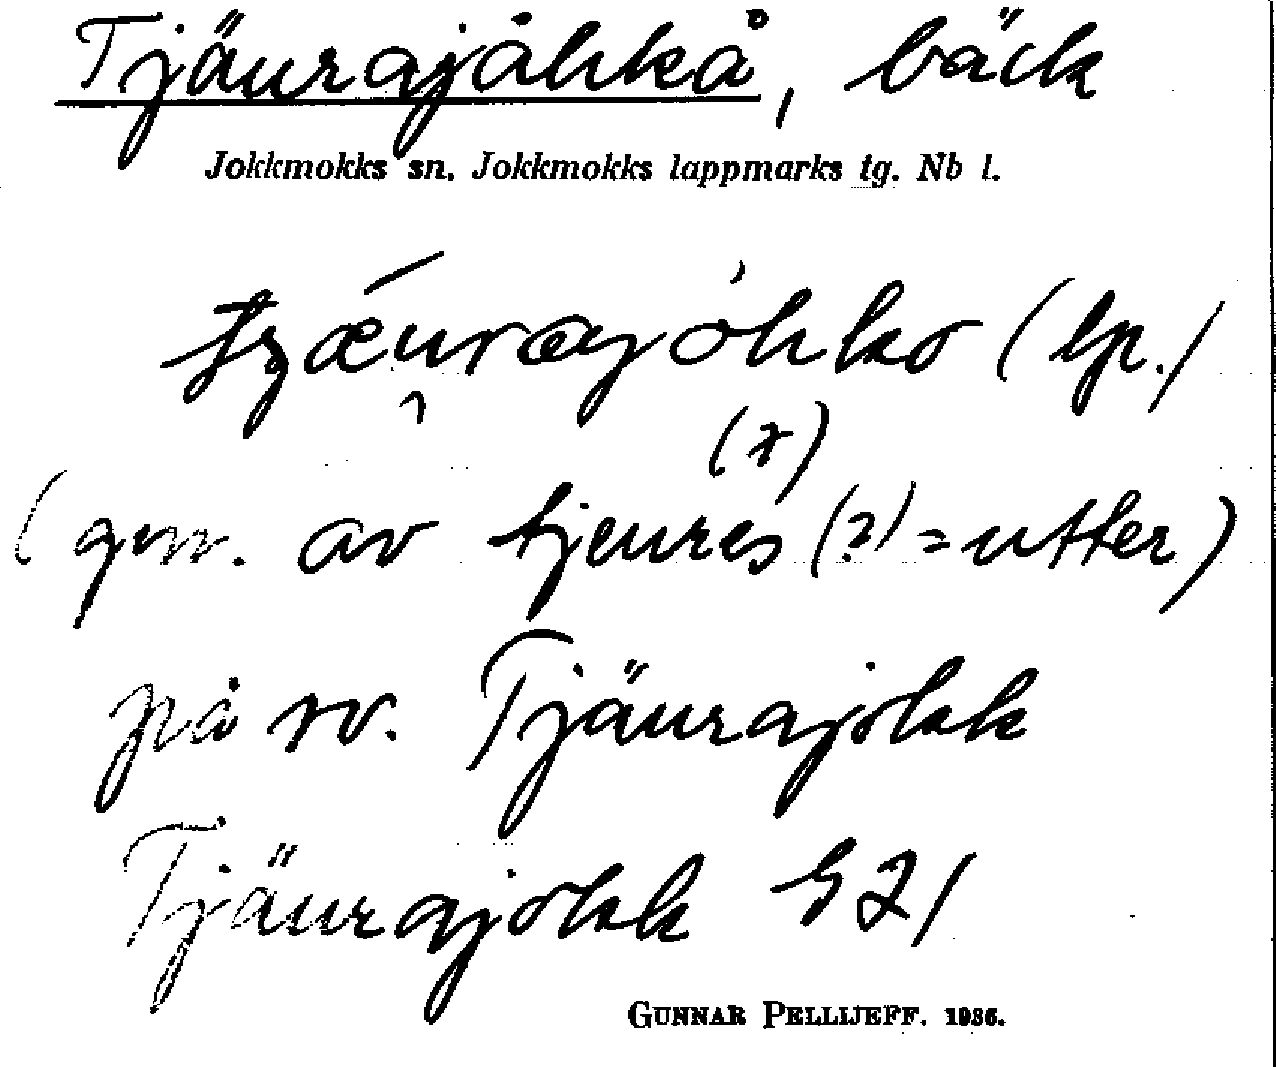 Tjäurajåhkå, bäck
Jokkmokks sn. Jokkmokks lappmarks tg. Nb l.
(lp.)
(gm. av tjeures (?) = utter)
på sv. Tjäurajokk
Tjäurajokk
GUNNAR PELLIJEFF. 1936.